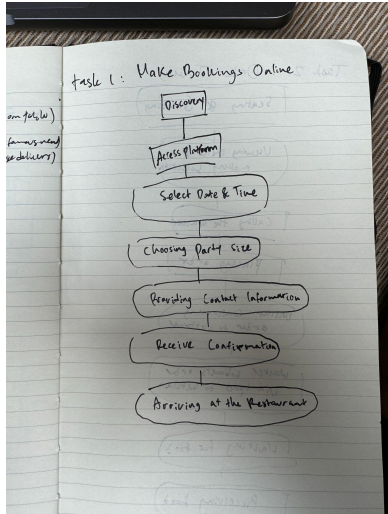 Task 1: Make Bookings Online
Discovery
Access Platform
Select Date & Time
Choosing Party Size
Providing Contact Information
Receive Confirmation
Arriving at the Restaurant